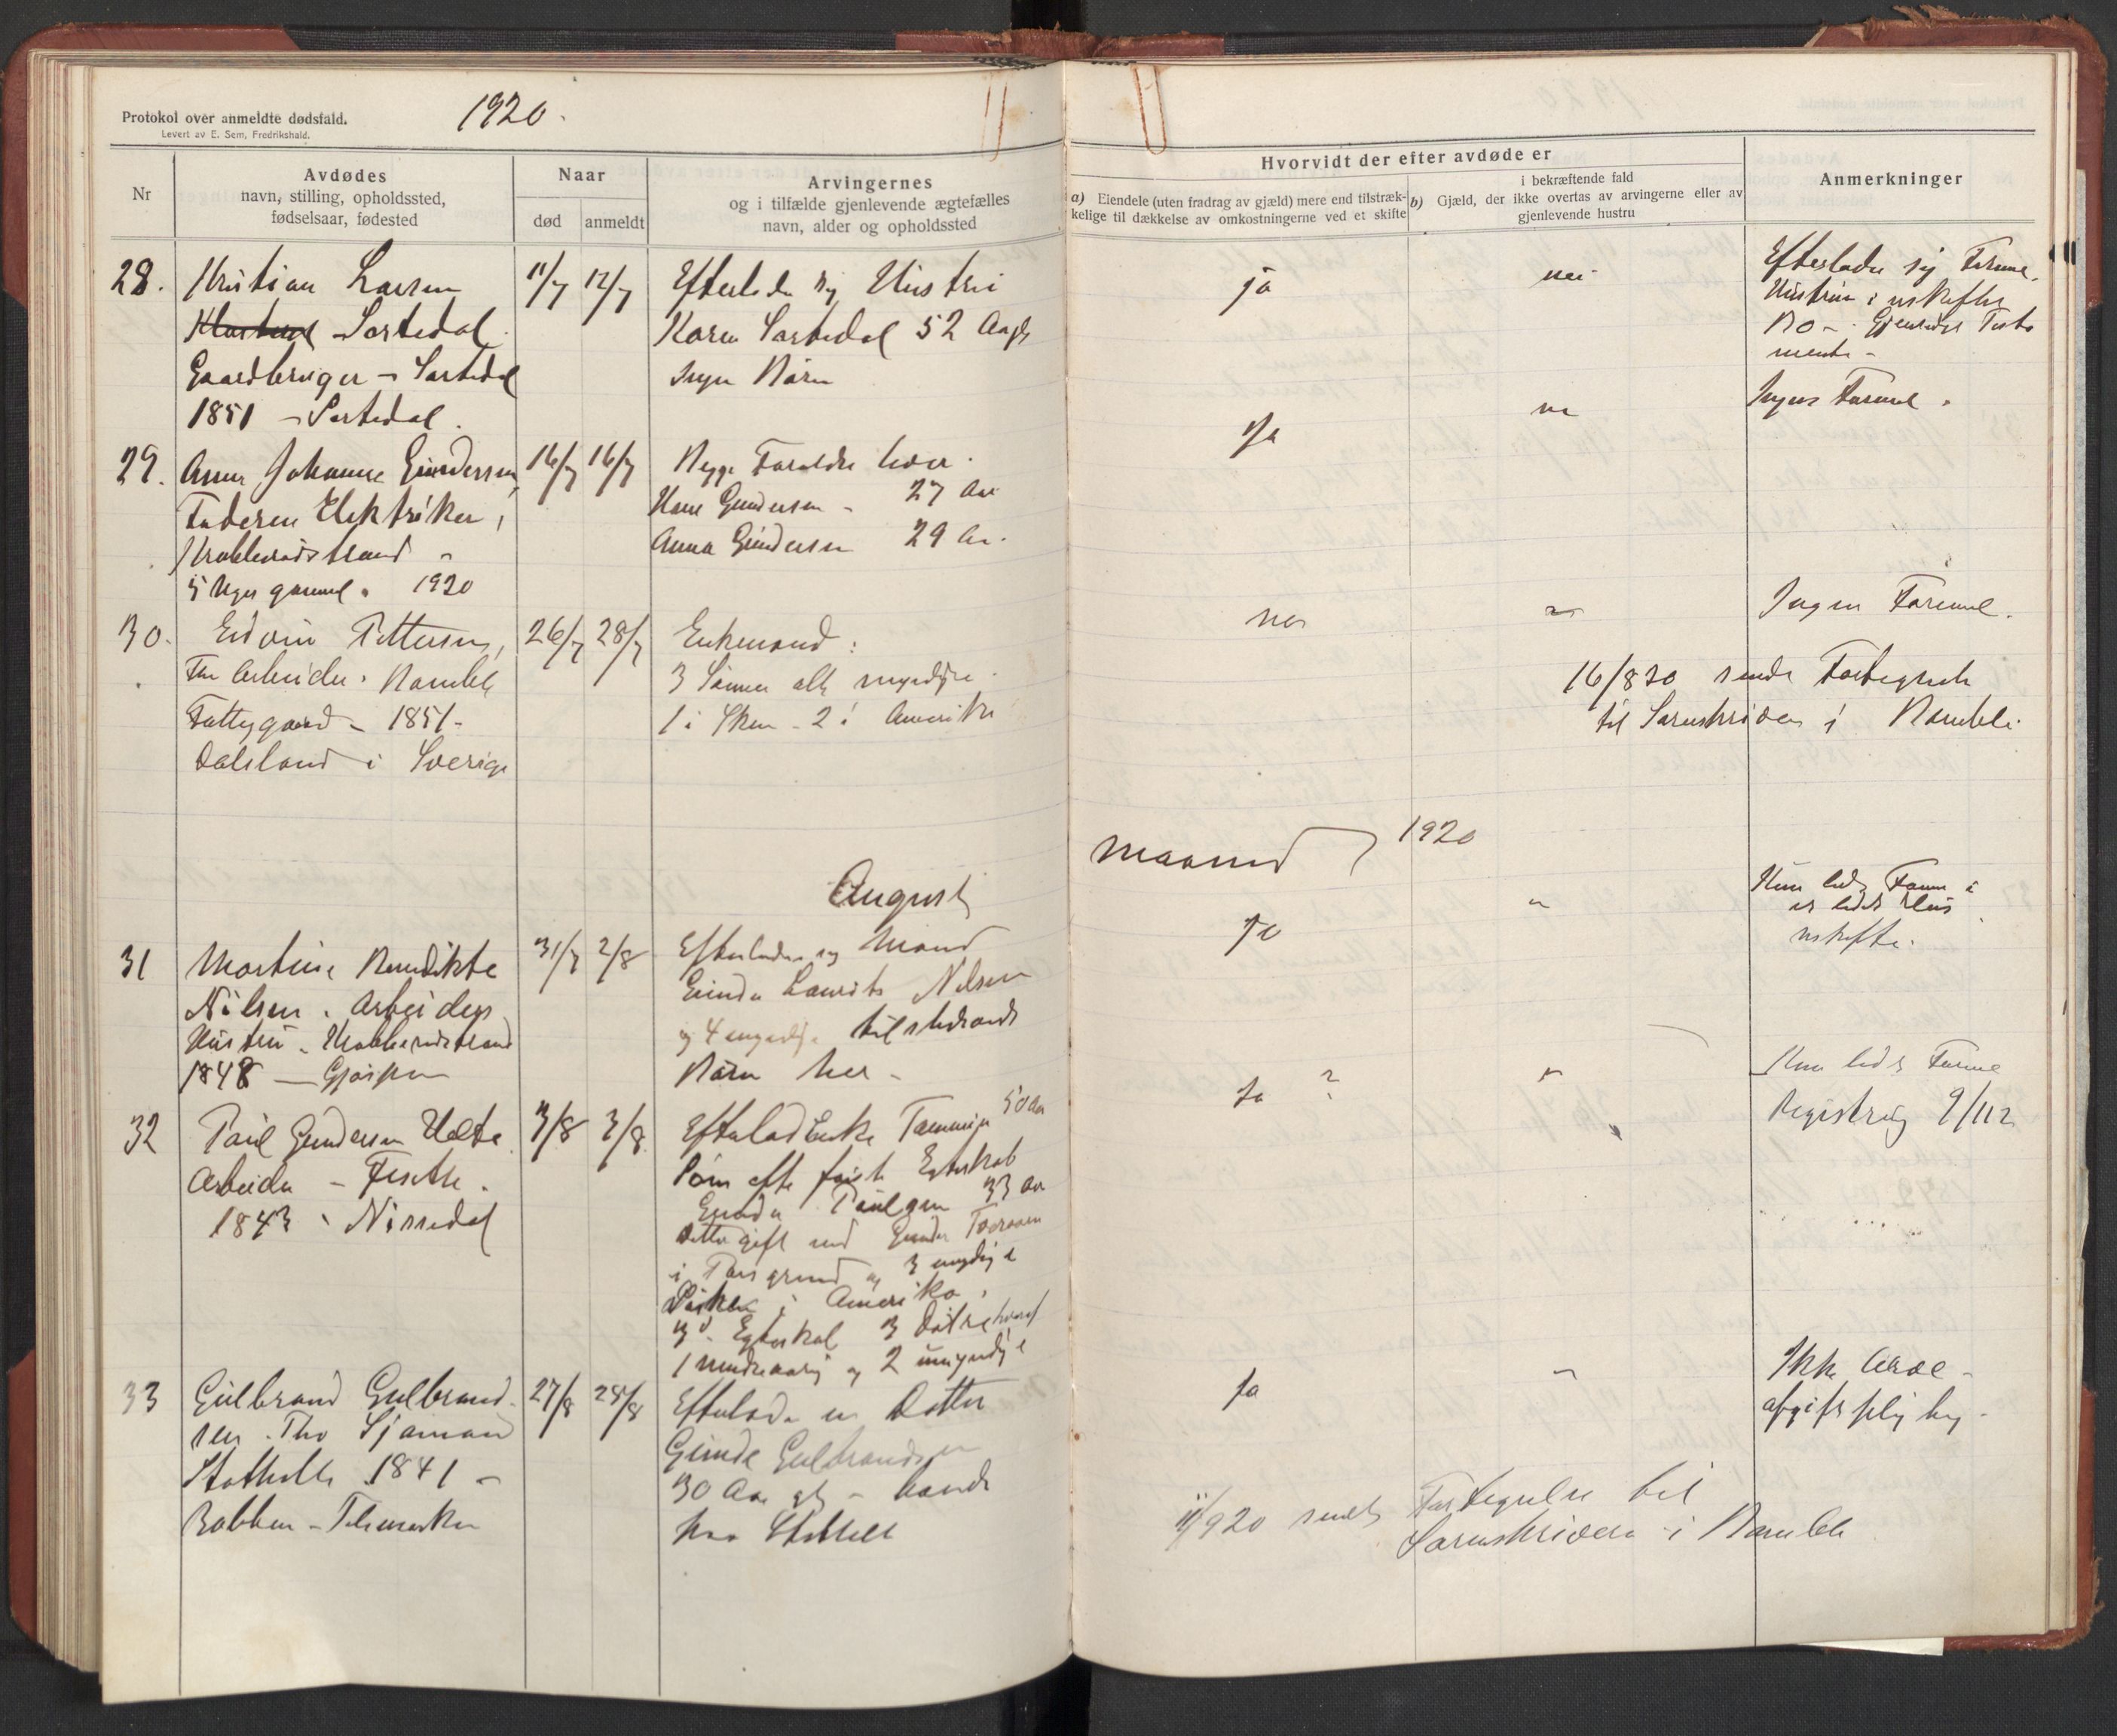 Protokol over anmeldte dødsfald.
Levert av E. Sem, Fredrikshald.
1920.
Nr
Avdødes
navn, stilling, opholdssted,
fødselsaar, fødested
Naar
død
anmeldt
Arvingernes
og i tilfælde gjenlevende ægtefælles
navn, alder og opholdssted
Hvorvidt der efter avdøde er
a) Eiendele (uten fradrag av gjæld) mere end tilstræk-
kelige til dækkelse av omkostningerne ved et skifte
i bekræftende fald
b) Gjæld, der ikke overtas av arvingerne eller av
gjenlevende hustru
Anmerkninger
28.
Kristian Larsen
Sortedal.
Gaardbruger - Sortedal
1851 - Sortedal.
11/7
12/7
Efterlader sig Hustru
Karen Sortedal 52 Aar
Ingen Børn
ja
nei
Efterlader sig Formue.
Hustrun i uskiftet
Bo -. Gjensidigt Testa
mente -
29.
Anna Johanne Gundersen,
Faderen Elektriker,
Krabberødstrand -
5 Uger gammel. 1920
16/7
16/7
Begge Forældre lever.
Hans Gundersen - 27 Aar
Anna Gundersen 29 Aar.
Ja
Ingen Formue.
30.
Edvin Pettersen,
Fhv Arbeider. Bamble
Fattiggaard - 1851-
Dalsland i Sverige
26/7
28/7
Enkemand:
3 Sønner alle myndige.
1 i Skien - 2 i Amerika
nei
Ingen Formue.
16/8 20 sendt Fortegnelse
til Sorenskriveren i Bamble.
August
Maaned 1920
31
Martine Benedikte
Nilsen. Arbeiders
Hustru. Krabberødstrand
1848 - Gjerpen
31/7
2/8
Efterlader sig Mand
Gunder Laurits Nilsen
og 4 myndige tilstedeværende
Børn her -
Ja
uskifte.
32
Paul Gundersen Hølte
Arbeider -
1843 - Nissedal
3/8
3/8
Efterlod Enke 50 Aar
Søn efter første Egteskab
Gunder Paulsen 33 Aar
Datter gift med Gunder
i Porsgrund og 3 myndige
i Amerika.
Egteskab 3 Døtre hvoraf
1 mindreaarig og 2 umyndige
Ja ?
Formue
Registrering 9/11 2
33
Gulbrand Gulbrand-
sen. Fhv Sjømand
Stathelle 1841 -
Telemarken
27/8
28/8
Efterlader en Datter
Gunda Gulbrandsen
30 Aar
paa Stathelle
Ja
Ikke Arve-
afgiftspligtig.
11/9 20 sendt Fortegnelse til
Sorenskriveren i Bamble